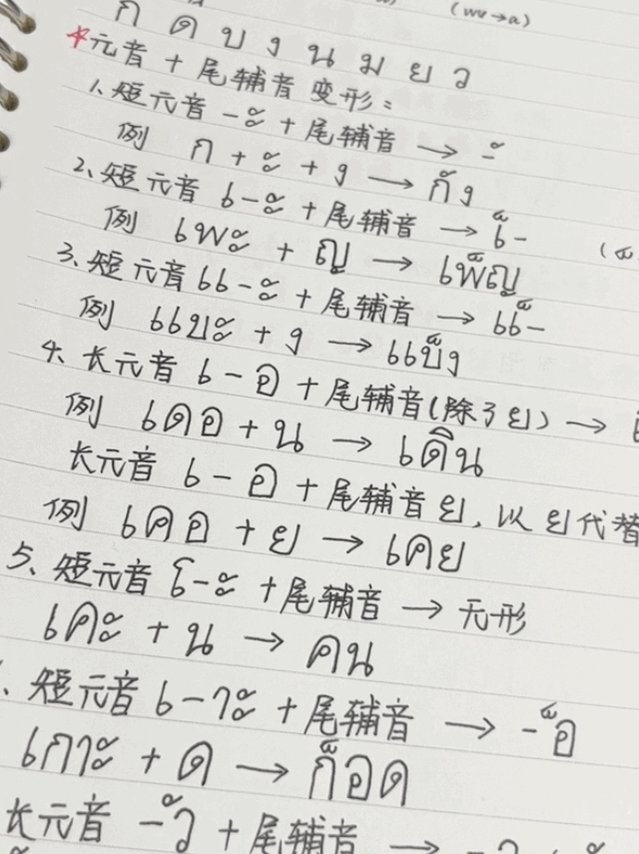 (wv→a)
ก ด บ ง น ม ย ว
*元音 + 尾辅音 变形:
1、短元音 -ะ + 尾辅音 → -ั
例 ก + ะ + ง → กัง
2、短元音 เ-ะ + 尾辅音 → เ-็
例 เพะ + ญ → เพ็ญ
3、短元音 แ-ะ + 尾辅音 → แ-็
例 แบะ + ง → แบ็ง
4、长元音 เ-อ + 尾辅音(除了ย) →
例 เดอ + น → เดิน
长元音 เ-อ + 尾辅音 ย, 以 ย代替
例 เคอ + ย → เคย
5、短元音 โ-ะ + 尾辅音 → 无形
เคะ + น → คน
、短元音 เ-าะ + 尾辅音 → -็อ
เกาะ + ด → ก็อด
长元音 -ัว + 尾辅音 →